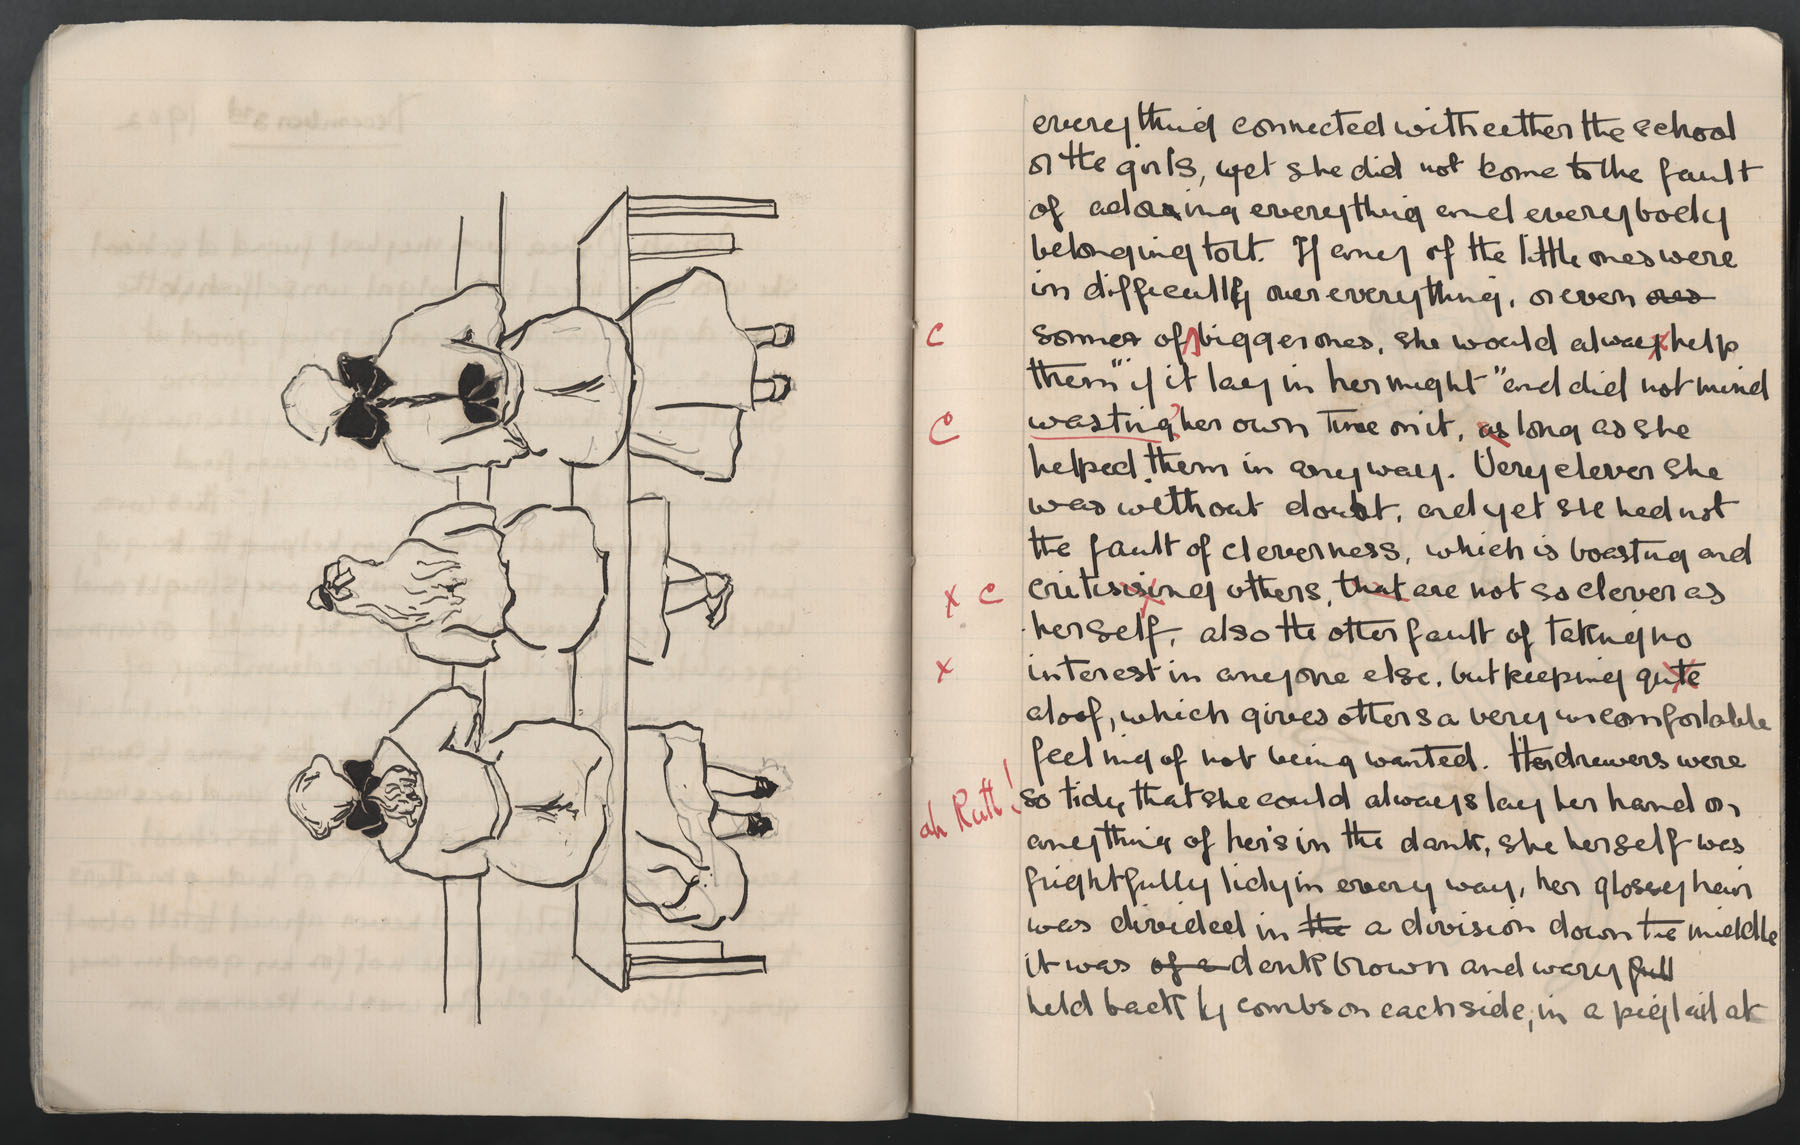 everything connected with either the school
or the girls, yet she did not come to the fault
of adoring everything and everybody
belonging to it. If any of the little ones were
in difficultly over everything, or even ones
some of bigger ones, she would always help
them "if it lay in her might" and did not mind
wasting her own time on it, as long as she
helped them in any way. Very clever she
was without doubt, and yet she had not
the fault of cleverness, which is boasting and
critisising others, that are not so clever as
herself, also the other fault of taking no
interest in anyone else, but keeping quite
aloof, which gives others a very uncomfortable
feeling of not being wanted. Her drawers were
so tidy, that she could always lay her hand on
anything of her's in the dark, she herself was
frightfully tidy in every way, her glossy hair
was divided in the a division down the middle
it was of a dark brown and wavy full
held back by combs on each side, in a pigtail at
C
C
x C
x
ah Ruth!
December 3rd 1902